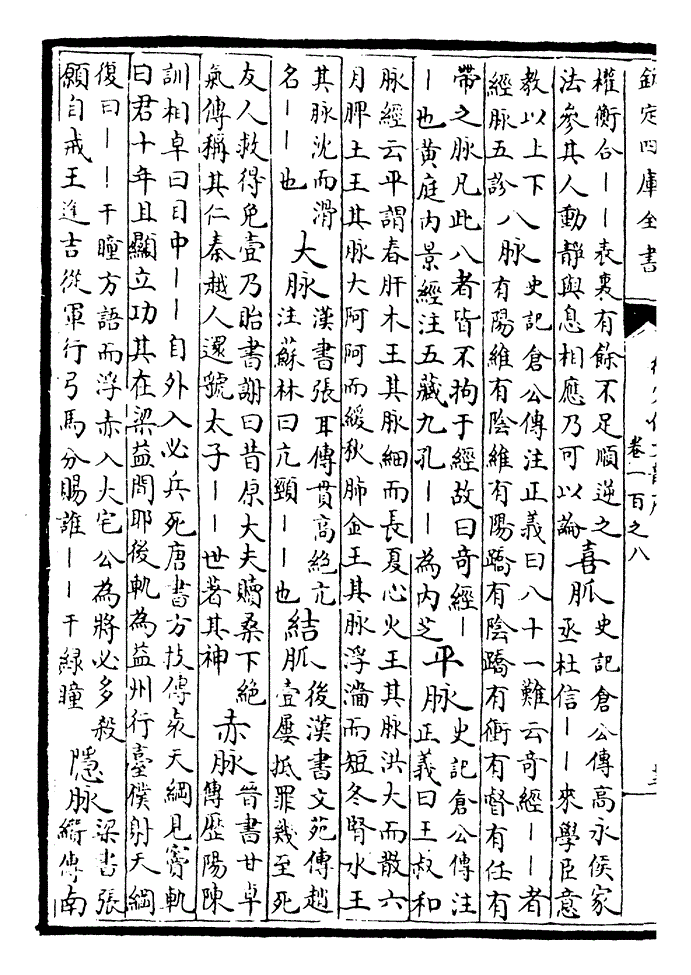 欽定四庫全書
卷一百之八
權衡合——表裏有餘不足順逆之
法參其人動靜與息相應乃可以論
喜脈
史記倉公傳高永侯家
丞杜信——來學臣意
教以上下
經脉五診
八脉
史記倉公傳注正義曰八十一難云奇經——者
有陽維有陰維有陽蹻有陰蹻有衝有督有任有
帶之脉凡此八者皆不拘于經故曰奇經—
—也黄庭内景經注五藏九孔——為内芝
平脉
史記倉公傳注
正義曰王叔和
脉經云平謂春肝木王其脉細而長夏心火王其脉洪大而散六
月脾土王其脉大阿阿而緩秋肺金王其脉浮濇而短冬腎水王
其脉沈而滑
名——也
大脉
漢書張耳傳貫高絶亢
注蘇林曰亢頸——也
結脈
後漢書文苑傳趙
壹屢抵罪幾至死
友人救得免壹乃貽書謝曰昔原大夫贖桑下絶
氣傳稱其仁秦越人還虢太子——世著其神
赤脉
晉書甘卓
傳歴陽陳
訓相卓曰目中——自外入必兵死唐書方技傳袁天綱見竇軌
曰君十年且顯立功其在梁益間耶後軌為益州行臺僕射天綱
復曰——干瞳方語而浮赤入大宅公為將必多殺
願自戒王進吉從軍行弓馬分賜誰——干緑瞳
隱脉
梁書張
纘傳南